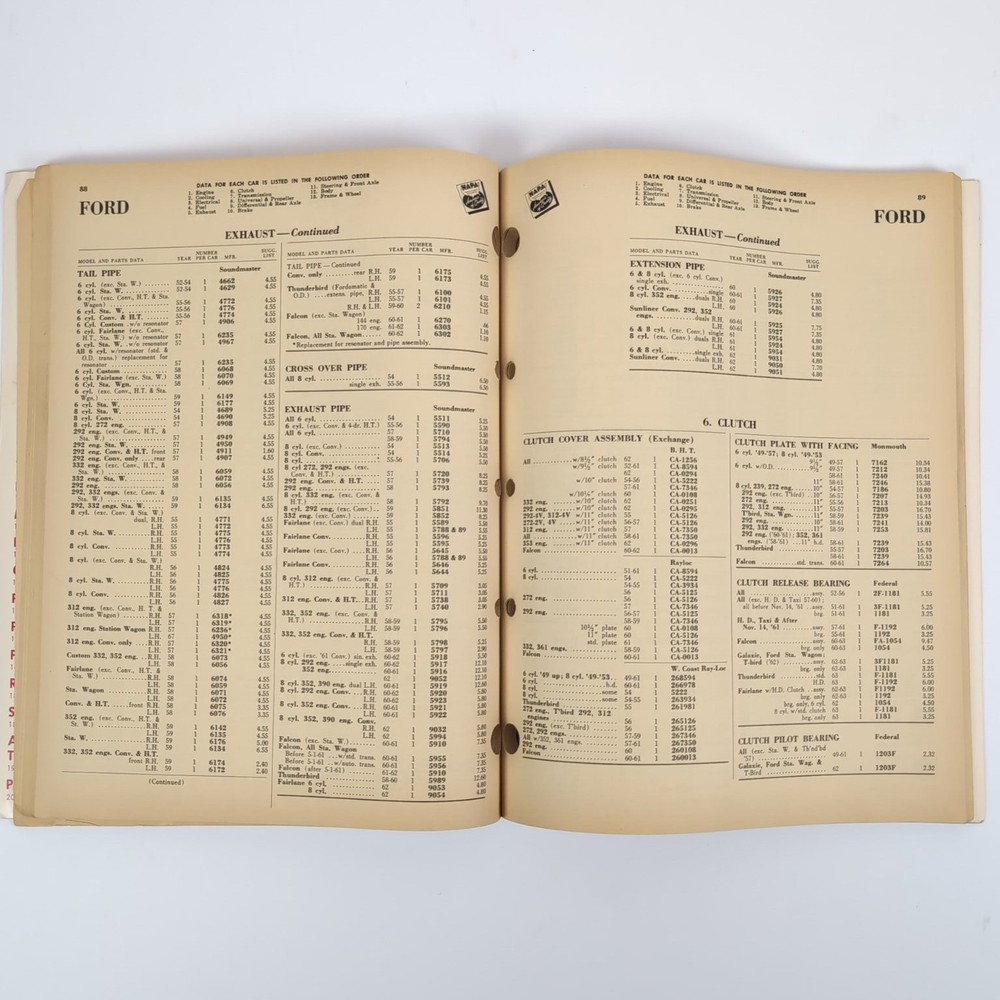 88
DATA FOR EACH CAR IS LISTED IN THE FOLLOWING ORDER
1. Engine 6. Clutch 11. Steering & Front Axle
2. Cooling 7. Transmission 12. Body
3. Electrical 8. Universal & Propeller 13. Frame & Wheel
4. Fuel 9. Differential & Rear Axle
5. Exhaust 10. Brake
NAPA
FORD
EXHAUST—Continued
MODEL AND PARTS DATA YEAR NUMBER PER CAR MFR. SUGG. LIST
TAIL PIPE Soundmaster
6 cyl. (exc. Sta. W.) 52-54 1 4662 4.55
6 cyl. Sta. W. 52-54 1 4629 4.55
6 cyl. (exc. Conv., H.T. & Sta.
Wagon) 55-56 1 4772 4.55
6 cyl. Sta. W. 55-56 1 4776 4.55
6 cyl. Conv. & H.T. 55-56 1 4774 4.55
6 Cyl. Custom w/o resonator 57 1 4906 4.55
6 cyl. Fairlane (exc. Conv.,
H.T., Sta. W.) w/o resonator 57 1 6235 4.55
6 cyl. Sta. W. w/o resonator 57 1 4967 4.55
All 6 cyl. w/resonator (std. &
O.D. trans.) replacement for
resonator 57 1 6235 4.55
6 cyl. Custom 58 1 6068 4.55
6 cyl. Fairlane (exc. Sta. W.) 58 1 6070 4.55
6 Cyl. Sta. Wgn. 58 1 6069 4.55
6 cyl. (exc. Conv., H.T. & Sta.
Wgn.) 59 1 6149 4.55
6 cyl. Sta. W. 59 1 6177 4.55
8 cyl. Sta. W. 54 1 4689 5.25
8 cyl. Conv. 54 1 4690 5.25
8 cyl. 272 eng. 57 1 4908 4.55
292 eng. (exc. Conv., H.T., &
Sta. W.) 57 1 4949 4.55
292 eng. Sta. W. 57 1 4950 4.55
292 eng. Conv. & H.T. front 57 1 4911 1.60
292 eng. Conv. only rear 57 1 4907 4.55
332 eng. (exc. Conv., H.T., &
Sta. W.) 58 1 6059 4.55
332 eng. Sta. W. 58 1 6072 4.55
292 eng. 58 1 6056 4.55
292, 332 engs. (exc. Conv. &
Sta. W.) 59 1 6135 4.55
292, 332 engs. Sta. W. 59 1 6134 6.55
8 cyl. (exc. Conv. & Sta. W.)
dual, R.H. 55 1 4771 4.55
L.H. 55 1 4772 4.55
8 cyl. Sta. W. R.H. 55 1 4775 4.55
L.H. 55 1 4776 4.55
8 cyl. Conv. R.H. 55 1 4773 4.55
L.H. 55 1 4774 4.55
8 cyl. (exc. Conv. & Sta. W.)
R.H. 56 1 4824 4.55
L.H. 56 1 4825 4.55
8 cyl. Sta. W. R.H. 56 1 4775 4.55
L.H. 56 1 4776 4.55
8 cyl. Conv. R.H. 56 1 4826 4.55
L.H. 56 1 4827 4.55
312 eng. (exc. Conv., H. T. &
Station Wagon) R.H. 57 1 6318* 4.55
L.H. 57 1 6319* 4.55
312 eng. Station Wagon R.H. 57 1 6236* 4.55
L.H. 67 1 4950* 4.55
312 eng. Conv. only R.H. 57 1 6320* 4.55
L.H. 57 1 6321* 4.55
Custom 332, 352 eng. R.H. 58 1 6073 4.55
L.H. 58 1 6056 4.55
Fairlane (exc. Conv., H.T. &
Sta. W.) R.H. 58 1 6074 4.55
L.H. 58 1 6059 4.55
Sta. Wagon R.H. 58 1 6071 4.55
L.H. 58 1 6072 4.55
Conv. & H.T. front R.H. 58 1 6075 3.35
L.H. 58 1 6076 3.35
352 eng. (exc. Conv., H.T. &
St. W.) R.H. 59 1 6142 4.55
L.H. 59 1 6135 4.55
Sta. W. R.H. 59 1 6176 5.00
L.H. 59 1 6134 6.55
332, 352 engs. Conv. & H.T.
front R.H. 59 1 6174 2.40
L.H. 59 1 6172 2.40
(Continued)
MODEL AND PARTS DATA YEAR NUMBER PER CAR MFR. SUGG. LIST
TAIL PIPE — Continued
Conv. only rear R.H. 59 1 6175 4.55
L.H. 59 1 6173 4.55
Thunderbird (Fordomatic &
O.D.) extens. pipe, R.H. 55-57 1 6100 4.55
L.H. 55-57 1 6101 4.55
R.H. & L.H. 59-60 2 6210 1.15
Falcon (exc. Sta. Wagon)
144 eng. 60-61 1 6270
170 eng. 61-62 1 6303 1.10
Falcon, All Sta. Wagon 60-62 1 6302 1.10
*Replacement for resonator and pipe assembly.
CROSS OVER PIPE Soundmaster
All 8 cyl. 54 1 5512 6.50
single exh. 55-56 1 5593 6.50
EXHAUST PIPE Soundmaster
All 6 cyl. 54 1 5511
6 cyl. (exc. Conv. & 4-dr. H.T.) 55-56 1 5590
All 6 cyl. 57 1 5710
58-59 1 5794
8 cyl. (exc. Conv.) 54 1 5513
8 cyl. Conv. 54 1 5514
8 cyl. 55-56 1 5706
8 cyl 272, 292 engs. (exc.
Conv. & H.T.) 57 1 5720
292 eng. Conv. & H.T. 57 1 5739
292 eng. 58 1 5793
8 cyl. 332 eng. (exc. Conv. &
H.T.) 58 1 5792
8 cyl. 292 eng. (exc. Conv.) 59 1 5851
332 eng. (exc. Conv.) 59 1 5852
Fairlane (exc. Conv.) dual R.H. 55 1 5589
L.H. 55 5788 & 89
Fairlane Conv. R.H. 55 1 5596
L.H. 55 1 5595
Fairlane (exc. Conv.) R.H. 56 1 5645
L.H. 56 1 5788 & 89
Fairlane Conv. R.H. 56 1 5646
L.H. 56 1 5644
8 cyl. 312 eng. (exc. Conv. &
H.T.) R.H. 57 1 5709
L.H. 57 1 5711
312 eng. Conv. & H.T. R.H. 57 1 5738
L.H. 57 1 5740
332, 352 eng. (exc. Conv. &
H.T.) R.H. 58-59 1 5795
L.H. 58-59 1 5796
332, 352 eng. Conv. & H.T.
R.H. 58-59 1 5798
L.H. 58-59 1 5797
6 cyl. (exc. '61 Conv.) sin. exh. 60-61 1 5918
8 cyl. 292 eng. single exh. 60-62 1 5917
352 eng. 60-62 1 5916
62 1 9052
8 cyl. 352, 390 eng. dual L.H. 60-61 1 5919
8 cyl. 292 eng. Conv. R.H. 60-62 1 5920
L.H. 60-62 1 5923
8 cyl. 352 eng. Conv. R.H. 60-61 1 5921
L.H. 60-61 1 5922
8 cyl. 352, 390 eng. Conv.
R.H. 62 1 9032
L.H. 62 1 5994
Falcon (exc. Sta. W.) 60-61 1 5910
Falcon, All Sta. Wagon
Before 5-1-61 w/std. trans. 60-61 1 5955
Before 5-1-61 w/auto. trans. 60-61 1 5956
Falcon (after 5-1-61) 61-62 1 5910
Thunderbird 58-60 1 5989
Fairlane 6 cyl. 62 1 9053
8 cyl. 62 1 9054
89
DATA FOR EACH CAR IS LISTED IN THE FOLLOWING ORDER
1. Engine 6. Clutch 11. Steering & Front Axle
2. Cooling 7. Transmission 12. Body
3. Electrical 8. Universal & Propeller 13. Frame & Wheel
4. Fuel 9. Differential & Rear Axle
5. Exhaust 10. Brake
NAPA
FORD
EXHAUST—Continued
MODEL AND PARTS DATA YEAR NUMBER PER CAR MFR. SUGG. LIST
EXTENSION PIPE Soundmaster
6 & 8 cyl. (exc. 6 cyl. Conv.)
single exh. 60 1 5926 4.80
6 cyl. Conv. single 60-61 1 5927 7.35
8 cyl. 352 eng. duals R.H. 60 1 5924 4.80
L.H. 60 1 5926 4.80
Sunliner Conv. 292, 352
engs. duals R.H. 60-61 1 5925 7.75
L.H. 60-61 1 5927 7.35
6 & 8 cyl. (exc. Conv.) single 61 1 5954 4.80
8 cyl. (exc. Conv.) duals R.H. 61 1 5924 4.80
L.H. 61 1 5954 4.80
6 & 8 cyl. single exh. 62 1 9051 4.80
Sunliner Conv. duals R.H. 62 1 9050 7.70
L.H. 62 1 9051 4.80
6. CLUTCH
CLUTCH COVER ASSEMBLY (Exchange)
B. H. T.
All w/8½" clutch 62 1 CA-1256
w/9½" clutch 52-61 1 CA-8594
62 1 CA-0294
w/10" clutch 54-56 1 CA-5222
57-61 1 CA-7346
w/10½" clutch 60 1 CA-0108
332 eng. w/10" clutch 62 1 CA-0251
292 eng. w/10" clutch 62 1 CA-0295
292-4V, 312-4V w/11" clutch 55 1 CA-5126
272-2V, 4V w/11" clutch 56-57 1 CA-5126
312 eng. w/11" clutch 57 1 CA-7350
All w/11" clutch 58-61 1 CA-7350
353 eng. w/11" clutch 62 1 CA-0296
Falcon 60-62 1 CA-0013
Rayloc
6 cyl. 51-61 1 CA-8594
8 cyl. 54 1 CA-5222
54-55 1 CA-3934
272 eng. 56 1 CA-5125
56 1 CA-5126
57 1 CA-7346
292 eng. 56-57 1 CA-5125
58-59 1 CA-7346
10½" plate 60 1 CA-0108
11" plate 60 1 CA-5126
std. plate 61 1 CA-7346
332, 361 engs. 58-59 1 CA-5126
Falcon 60-61 1 CA-0013
W. Coast Ray-Loc
6 cyl. '49 up; 8 cyl. '49-'53 49-61 1 268594
6 cyl. h.d. 60-61 1 266978
8 cyl. some 54 1 5222
8 cyl. some 54-55 1 263934
Thunderbird 55 1 261981
272 eng., T'bird 292, 312
engines 56 1 265126
292 eng. (exc. T'bird) 56 1 265125
272, 292 engs. 57-59 1 267346
All w/352, 361 engs. 57-61 1 267350
292 eng. 60 1 260108
Falcon 60-61 1 260013
CLUTCH PLATE WITH FACING Monmouth
6 cyl. '49-'57; 8 cyl. '49-'53
9½" 49-57 1 7162 10.34
6 cyl. w/O.D. 9½" 49-57 1 7212 10.34
58-61 1 7240 10.41
11" 58-61 1 7246 15.38
8 cyl. 239, 272 eng. 10" 54-57 1 7186 10.80
292 eng. (exc. T'bird) 10" 56-57 1 7207 14.93
272 eng. 11" 55-56 1 7213 10.34
292, 312 eng. 11" 55-57 1 7203 16.70
T'bird, Sta. Wgn. 11" 58-59 1 7239 15.43
292 eng. 10" 58-61 1 7241 14.00
292, 332 eng. 11" 58-59 1 7253 15.81
292 eng. ('60-'61); 352, 361
eng. ('58-'61) 11" h.d. 60-61 1 7239 15.43
Thunderbird 55-57 1 7203 16.70
58-61 1 7239 15.43
Falcon std. trans. 60-61 1 7264 10.57
CLUTCH RELEASE BEARING Federal
All assy. 52-56 1 2F-1181 5.55
All (exc. H. D. & Taxi 57-60);
all before Nov. 14, '61 assy. 51-61 1 3F-1181 5.25
brg. 51-61 1 1181 3.25
H. D., Taxi & After
Nov. 14, '61 assy. 57-61 1 F-1192 6.00
brg. 55-61 1 1192 3.25
Falcon assy. 60-61 1 FA-1054 9.47
brg. only 60-61 1 1054 4.50
Galaxie, Ford Sta. Wagon;
T-bird ('62) assy. 62-63 1 3F1181 5.25
brg. only 62-63 1 1181 3.25
Thunderbird std. 63 1 F-1181 5.55
H.D. 63 1 F-1192 6.00
Fairlane w/H.D. Clutch assy. 62-63 1 F1192 6.00
brg. only 62-63 1 1192 3.25
brg. only, 6 cyl. 62 1 1054 4.50
8 cyl. w/std. clutch 63 1 F-1181 5.55
brg. only 63 1 1181 3.25
CLUTCH PILOT BEARING Federal
All (exc. Sta. W. & Th'nd'bd
'57) 49-61 1 1203F 2.32
Galaxie, Ford Sta. Wag. &
T-Bird 62 1 1203F 2.32